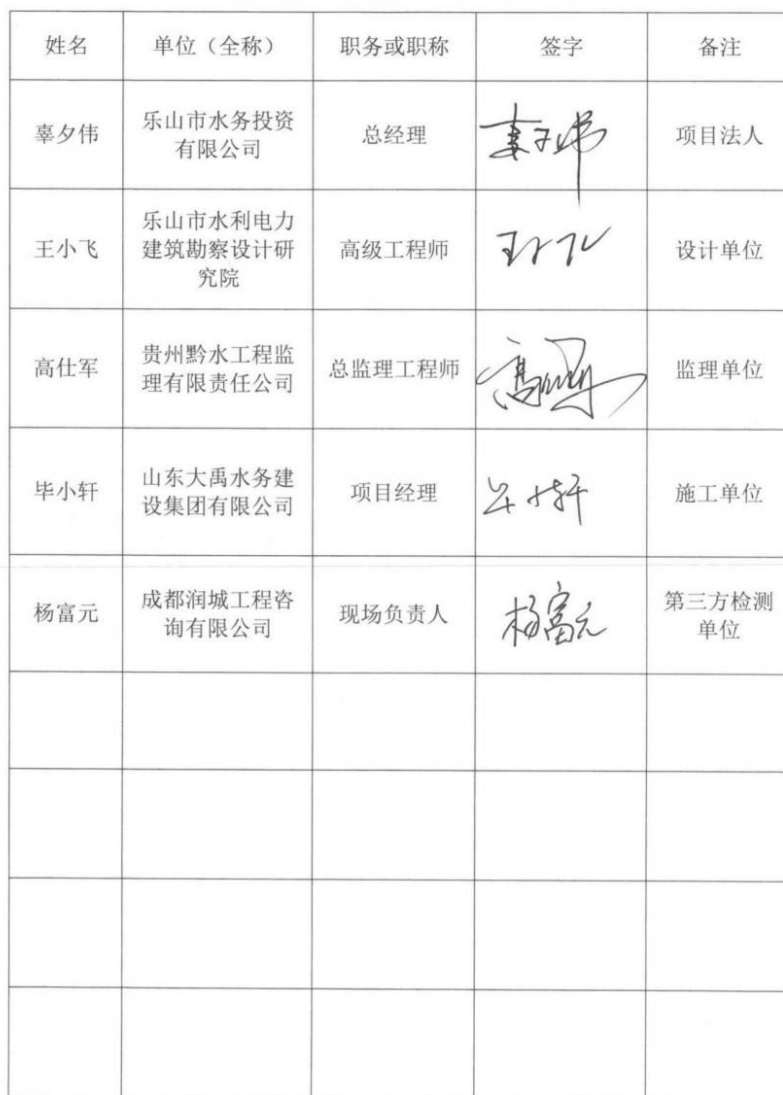 姓名 单位（全称） 职务或职称 签字 备注
辜夕伟 乐山市水务投资有限公司 总经理 项目法人
王小飞 乐山市水利电力建筑勘察设计研究院 高级工程师 设计单位
高仕军 贵州黔水工程监理有限责任公司 总监理工程师 监理单位
毕小轩 山东大禹水务建设集团有限公司 项目经理 毕小轩 施工单位
杨富元 成都润城工程咨询有限公司 现场负责人 杨富元 第三方检测单位